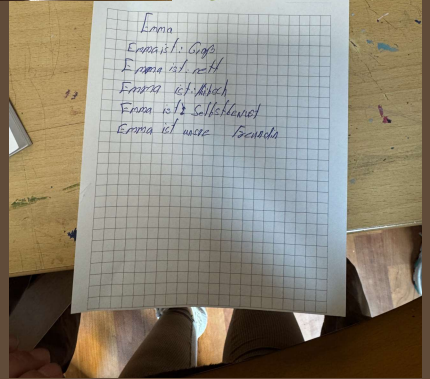 Emma
Emma ist: Groß
Emma ist: nett
Emma ist: hübsch
Emma ist: Selbstbewust
Emma ist unsre Freundin